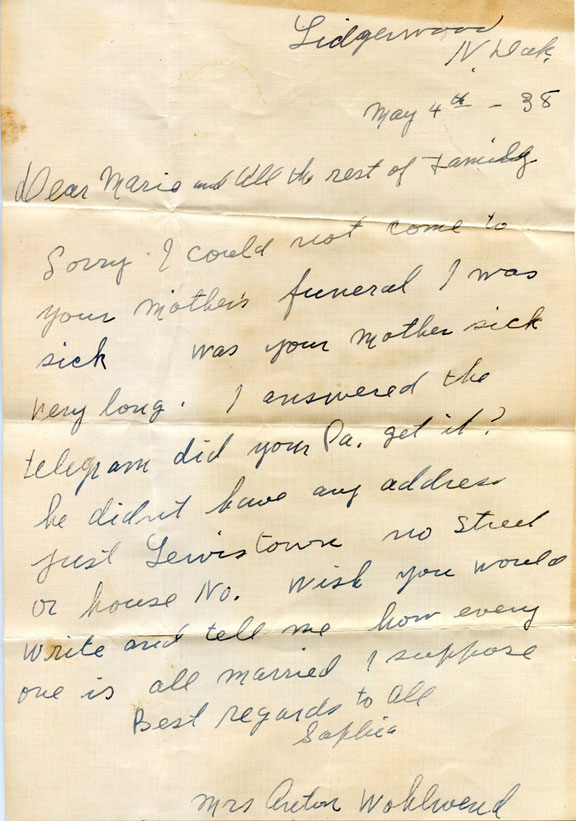 Lidgerwood
N. Dak.
May 4th - 38
Dear Marie and All the rest of Family
Sorry I could not come to
your mother's funeral I was
sick was your mother sick
very long. I answered the
telegram did your Pa. get it?
he didn't have any address
just Lewistown no Street
or house No. Wish you would
write and tell me how every
one is all married I suppose
Best regards to All
Sophia
Mrs Anton Wohlwend